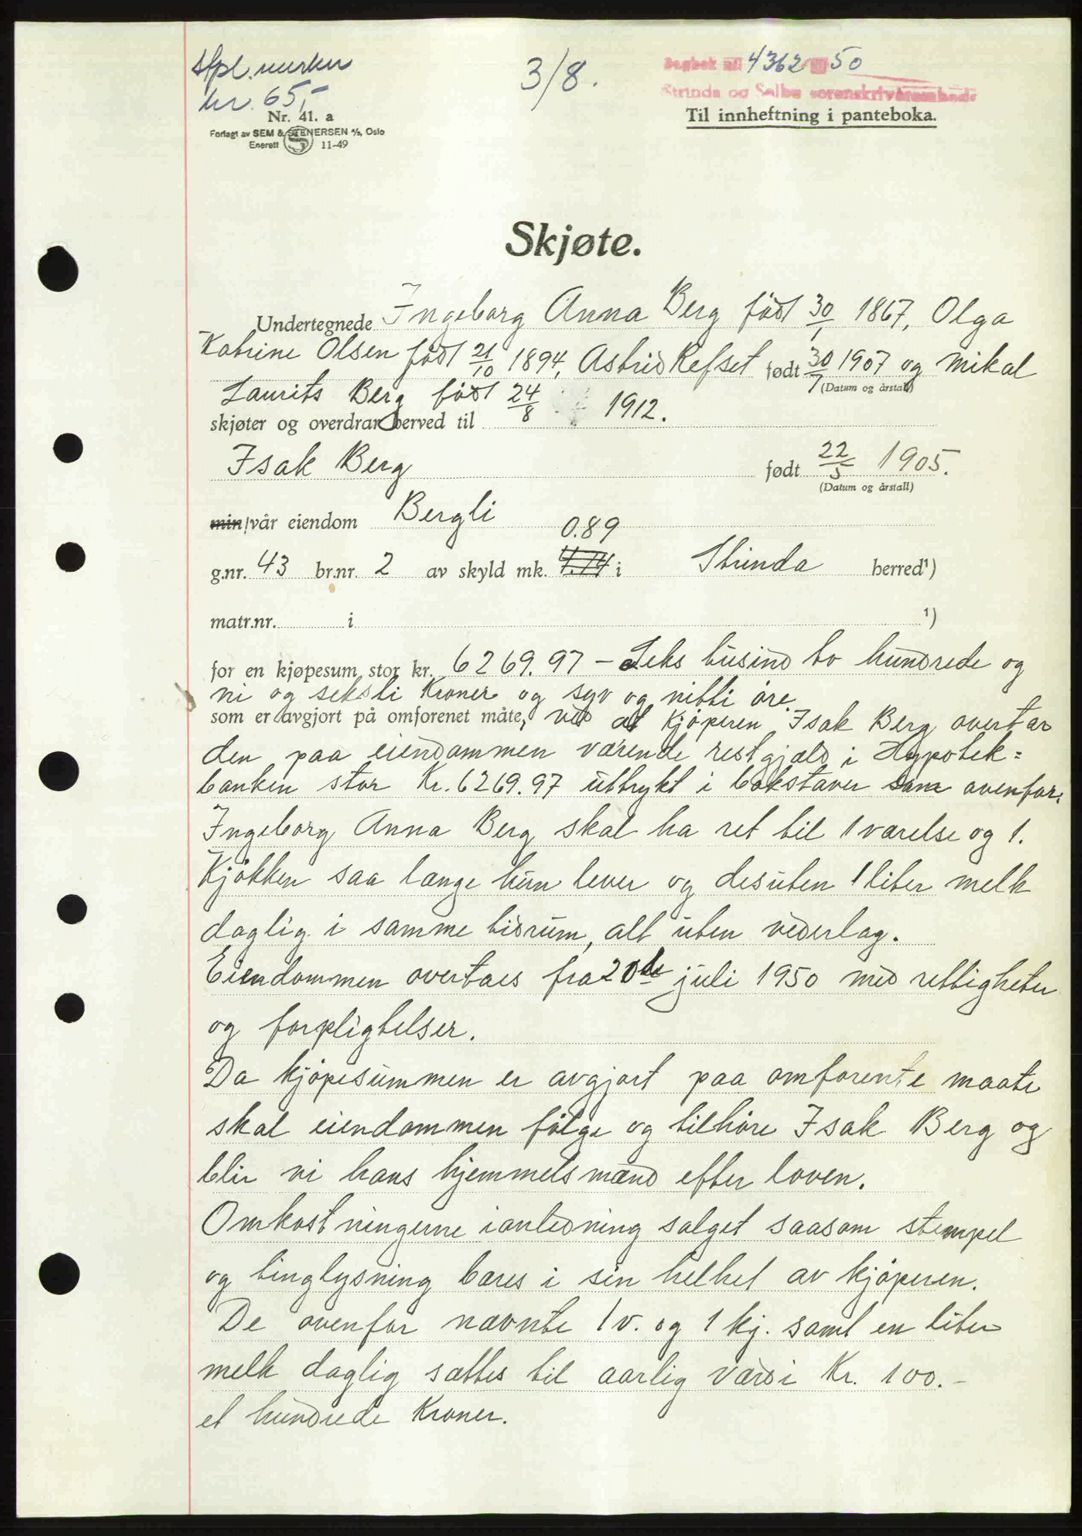 Stpl. merker
kr. 65,-
3/8.
Dagbok nr. 4362 50
Strinda og Selbu sorenskriverembede
Nr. 41. a
Forlagt av SEM & STENERSEN A/S, Oslo
Enerett 11-49
Til innheftning i panteboka.
Skjøte.
Undertegnede Ingeborg Anna Berg født 30/1 1867, Olga
Katrine Olsen født 21/10 1894, Astrid Refset født 30/7 1907 og Mikal
(Datum og årstall)
Laurits Berg født 24/8 1912.
skjøter og overdrar herved til
Isak Berg født 22/5 1905.
(Datum og årstall)
min/vår eiendom Bergli
0.89
g.nr. 43 br.nr. 2 av skyld mk. i Strinda herred¹)
matr.nr. i ¹)
for en kjøpesum stor kr. 6269.97 – Seks tusind to hundrede og
ni og seksti Kroner og syv og nitti øre
som er avgjort på omforenet måte, ved at kjøperen Isak Berg overtar
den paa eiendommen værende restgjæld i Hypotek=
banken stor Kr. 6269.97 uttrykt i bokstaver som ovenfor.
Ingeborg Anna Berg skal ha ret til 1 værelse og 1.
Kjøkken saa længe hun lever og desuten 1 liter melk
daglig i samme tidrum, alt uten vederlag.
Eiendommen overtaes fra 20de juli 1950 med rettigheter
og forpligtelser.
Da kjøpesummen er avgjort paa omforente maate
skal eiendommen følge og tilhøre Isak Berg og
blir vi hans hjemmelsmænd efter loven.
Omkostningerne i anledning salget saasom stempel
og tinglysning bæres i sin helhet av kjøperen.
De ovenfor nævnte 1 v. og 1 kj. samt en liter
melk daglig sættes til aarlig værdi Kr. 100.-
et hundrede Kroner.